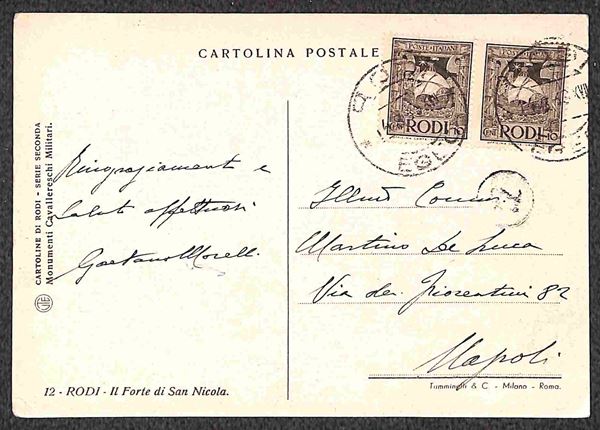 CARTOLINA POSTALE
POSTE ITALIANE
CENT. RODI 10
POSTE ITALIANE
CENT. RODI 10
RODI
EGEO
CARTOLINE DI RODI - SERIE SECONDA
Monumenti Cavallereschi Militari.
Ringraziamenti e
saluti affettuosi
Gaetano Morell.
Illmo Comm
Martino De Luca
Via dei Fiorentini 82
Napoli
12 - RODI - Il Forte di San Nicola.
Tumminelli & C. - Milano - Roma.